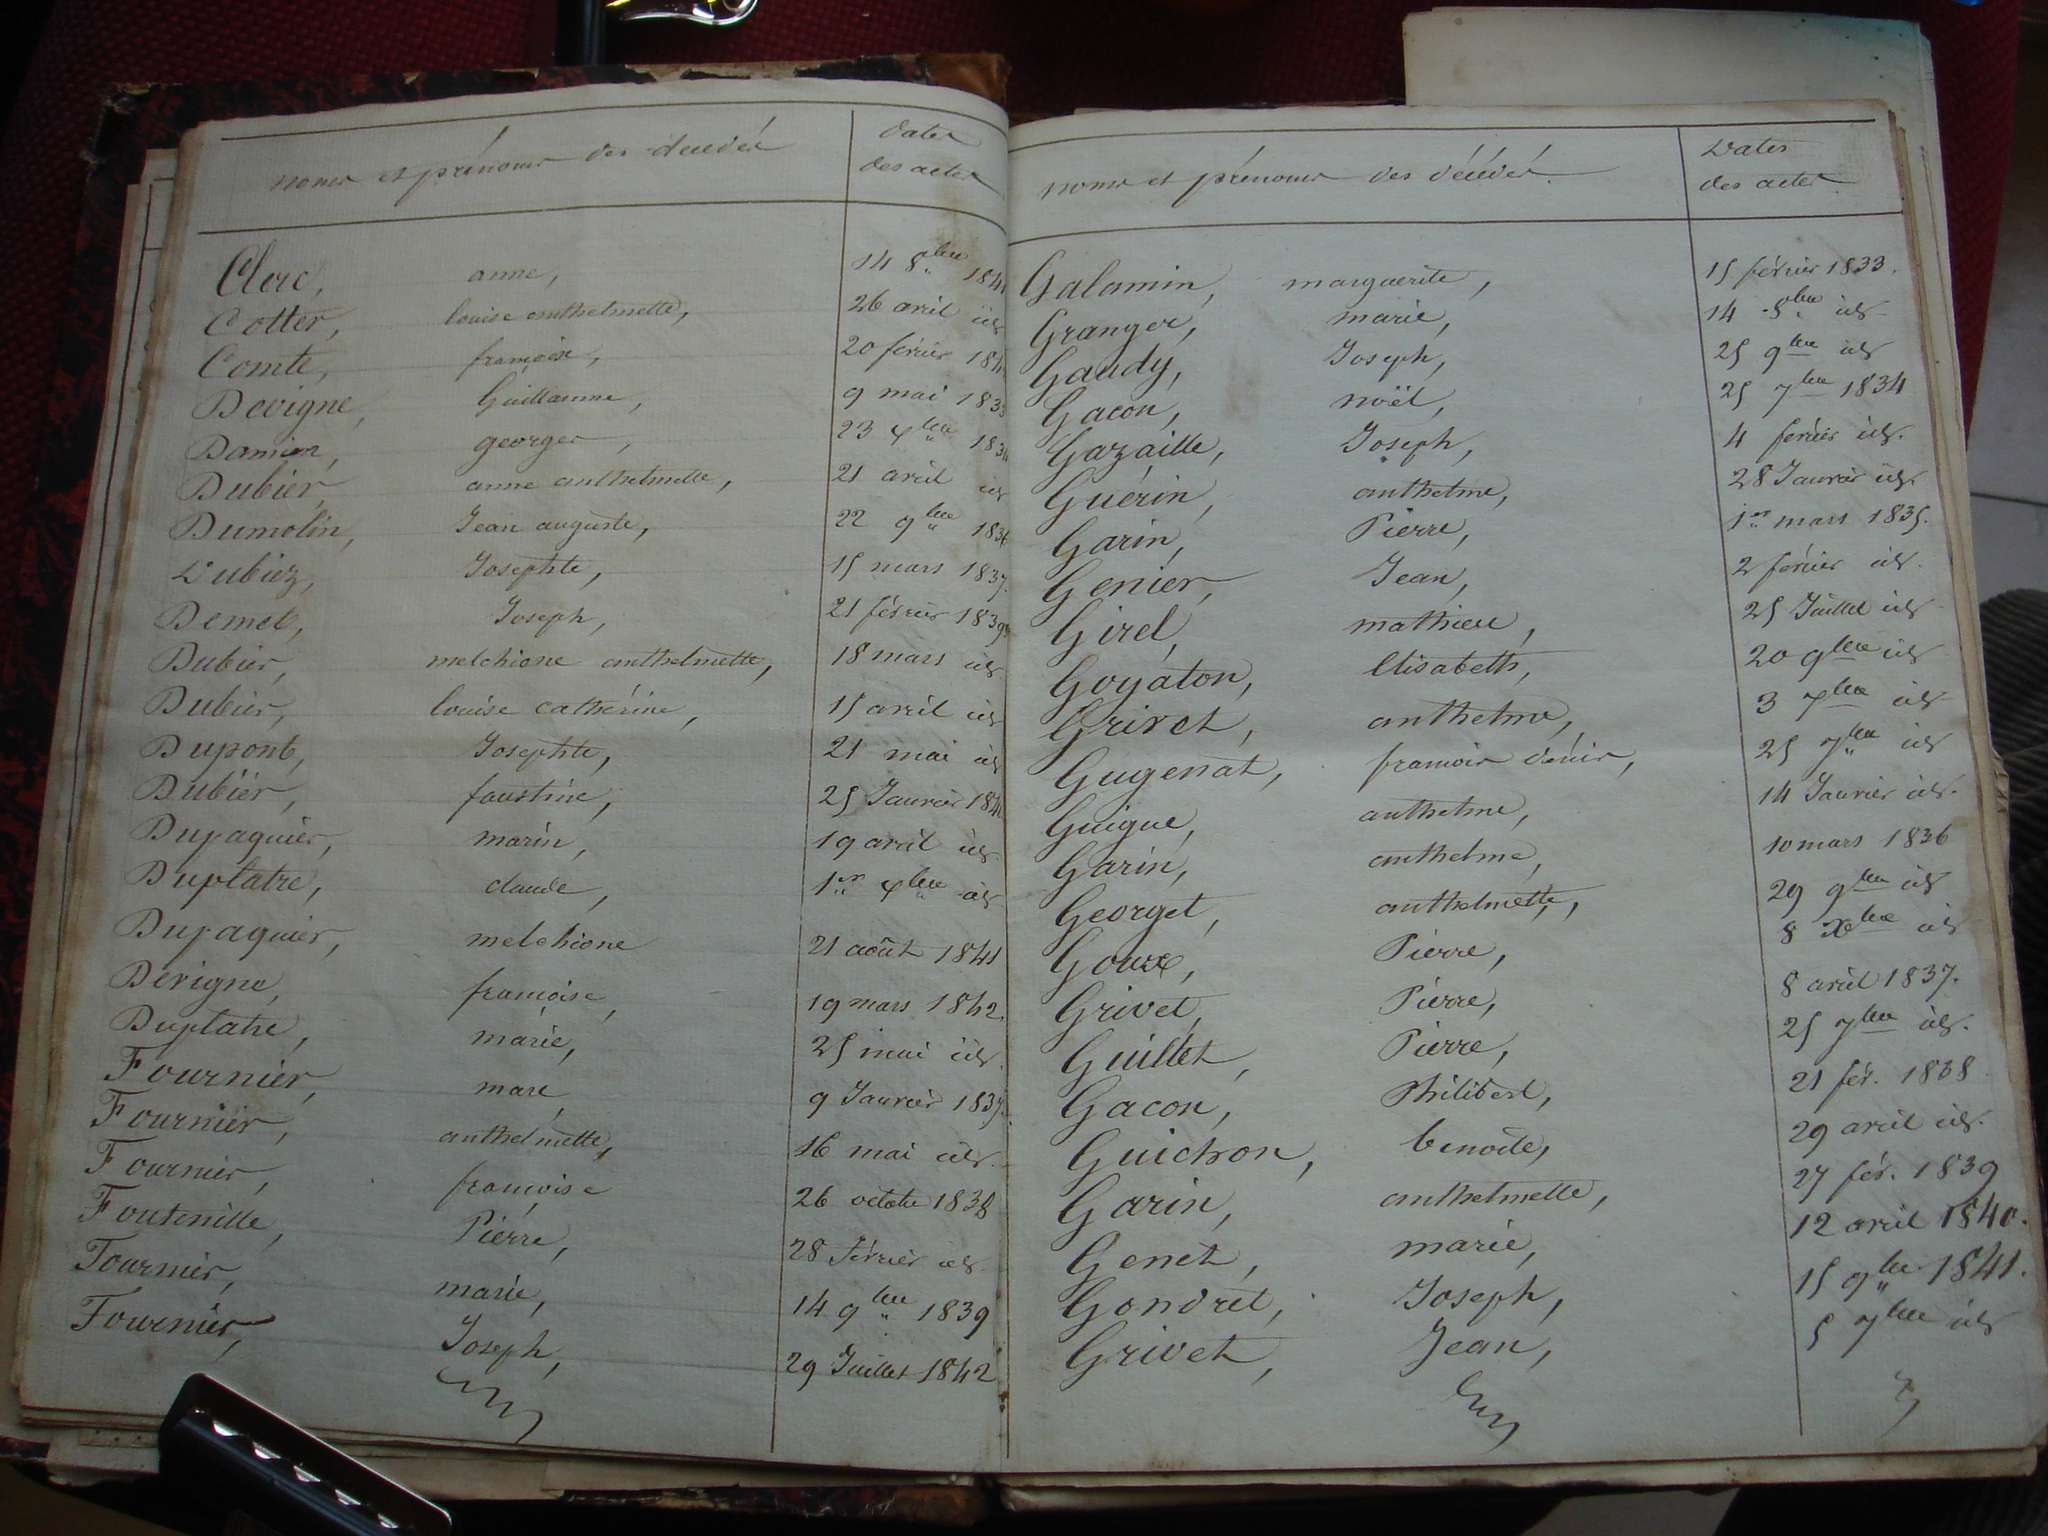 noms et prénoms des décédés Dates
des actes
Clerc, anne, 14 8bre 184
Cotter, louise anthelmette, 26 avril id
Comte, françoise, 20 février 184
Devigne, Guillaume, 9 mai 183
Damien, georges, 23 xbre 183
Dubier, anne anthelmette, 21 avril id
Dumolin, Jean auguste, 22 9bre 183
Dubiez, Josephte, 15 mars 1837.
Demet, Joseph, 21 février 1839
Dubier, melchione anthelmette, 18 mars id
Dubier, louise cathérine, 15 avril id
Dupont, Josephte, 21 mai id
Dubier, faustine, 25 Janvier 184
Dupaquier, marin, 19 avril id
Duplatre, claude, 1er xbre id
Dupaquier, melchione 21 août 1841
Devigne, françoise, 19 mars 1842.
Duplatre, marie, 25 mai id.
Fournier, marc, 9 Janvier 1837.
Fournier, anthelmette, 16 mai id.
Fournier, françoise 26 octobre 1838
Fontenille, Pierre, 28 février id.
Fournier, marie, 14 9bre 1839
Fournier, Joseph, 29 Juillet 1842
noms et prénoms des décédés. Dates
des actes.
Galamin, marguerite, 15 février 1833.
Granger, marie, 14 8bre id
Gaudy, Joseph, 25 9bre id
Gacon, noël, 25 7bre 1834
Gazaille, Joseph, 4 février id.
Guérin, anthelme, 28 Janvier id.
Garin, Pierre, 1er mars 1835.
Genier, Jean, 2 février id.
Girel, mathieu, 25 Juillet id
Goyaton, Elisabeth, 20 9bre id
Grivet, anthelme, 3 xbre id
Gugenat, françois dénis, 25 7bre id
Guigue, anthelme, 14 Janvier id.
Garin, anthelme, 10 mars 1836
Georget, anthelmette, 29 9bre id
Goux, Pierre, 8 Xbre id
Grivet, Pierre, 8 avril 1837.
Guillet, Pierre, 25 7bre id.
Gacon, Philibert, 21 fév. 1838
Guichon, benoite, 29 avril id.
Garin, anthelmette, 27 fév. 1839
Genet, marie, 12 avril 1840.
Gondret, Joseph, 15 9bre 1841.
Grivet, Jean, 5 7bre id